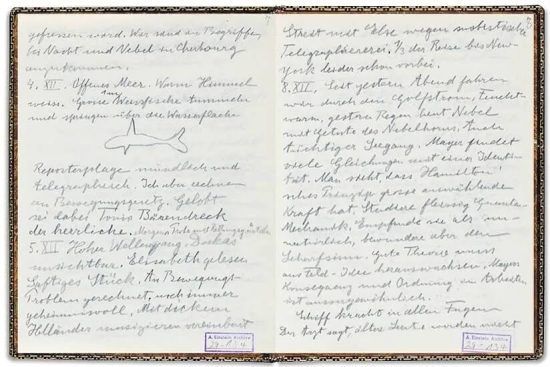 gefressen ward. War und im Begriffe,
bei Nacht und Nebel in Cherbourg
anzukommen.
4. XII. Offenes Meer. Warm Himmel
weiss. Grosse Weissfische tummeln
und springen über die Wasserfläche
Reporterplage mündlich und
telegraphisch. Ich aber rechnen
an Bewegungsgesetz. Gelobt
sei dabei Tonio Bärendreck
der herrliche.
5. XII Hoher Wellengang. Dickas
unsichtbar. Elisabeth gelesen
Saftiges Stück. An Bewegungs-
Problem gerechnet, noch immer
geheimnisvoll. Mit dickem
Holländer musizieren vereinbart
A. Einstein Archive
29-134
Streit mit Else wegen
Telegraphiererei. 1/2 der Reise bis New-
York leider schon vorbei.
8. XII. Seit gestern Abend fahren
wir durch den Golfstrom, feucht-
warm, gestern Regen heut Nebel
mit Getute des Nebelhorns. Auch
tüchtiger Seegang. Mayer findet
viele Gleichungen mit einer Identi-
tät. Man sieht, dass Hamilton'
sches Prinzip grosse auswählende
Kraft hat. Studiere fleissig Quanten-
Mechanik. Empfinde sie als un-
natürlich, bewundere aber den
Scharfsinn. Gute Theorie muss
aus Feld-Idee herauswachsen. Mayers
Konsequenz und Ordnung im Arbeiten
ist aussergewöhnlich.
Schiff kracht in allen Fugen
Der Arzt sagt, ältere Leute würden nicht
A. Einstein Archive
29-134